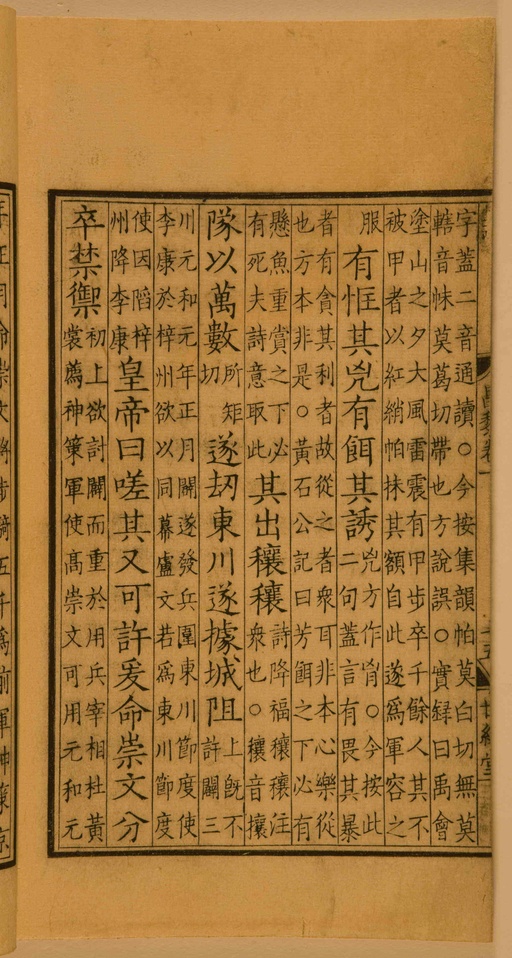 字蓋二音通讀○今按集韻帕莫白切無莫
轄音怽莫葛切帶也方說誤○實録曰禹會
塗山之夕大風雷震有甲步卒千餘人其不
被甲者以紅綃帕抹其額自此遂爲軍容之
服
有恇其兇有餌其誘
兇方作○今按此
二句蓋言有畏其暴
者有貪其利者故從之者衆耳非本心樂從
也方本非是○黃石公記曰芳餌之下必有
懸魚重賞之下必
有死夫詩意取此
其出穰穰
詩降福穰穰注
衆也○穰音攘
隊以萬數
所矩
切
遂刧東川遂據城阻
上旣不
許闢三
川元和元年正月闢遂發兵圍東川節度使
李康於梓州欲以同幕盧文若爲東川節度
使因䧟梓
州降李康
皇帝曰嗟其又可許爰命崇文分
卒禁禦
初上欲討闢而重於用兵宰相杜黃
裳薦神策軍使髙崇文可用元和元